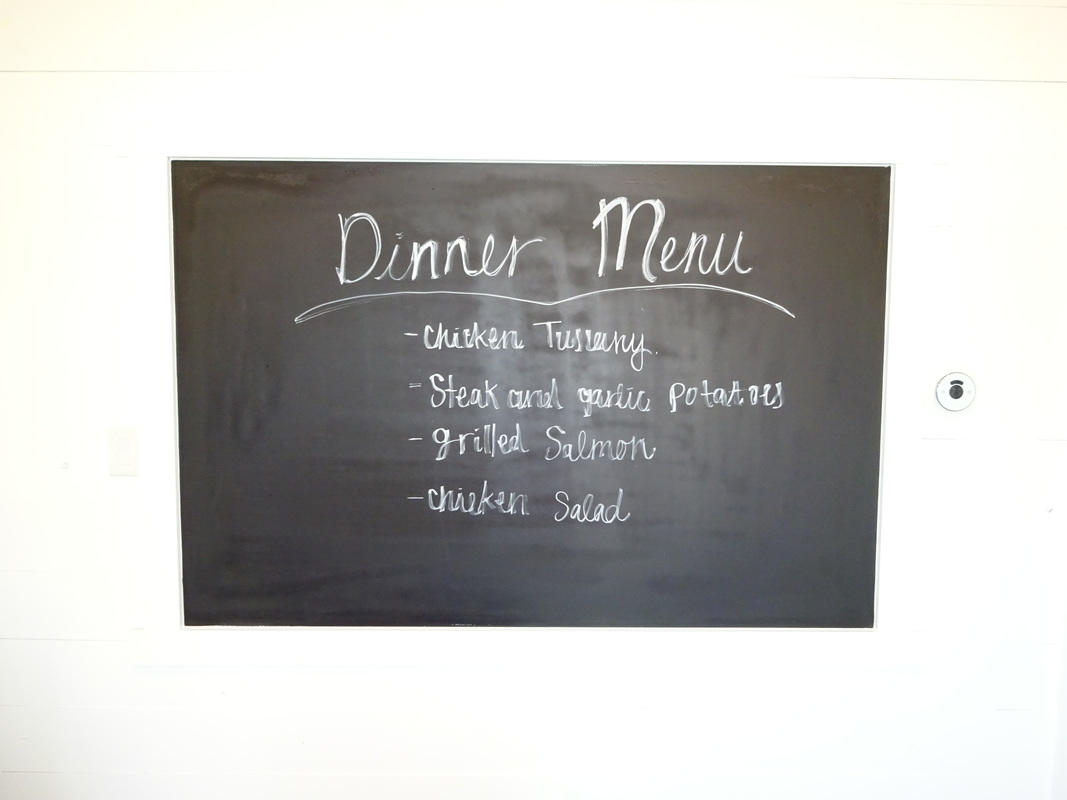 Dinner Menu
- Chicken Tuscany.
- Steak and garlic potatoes
- grilled Salmon
- chicken Salad